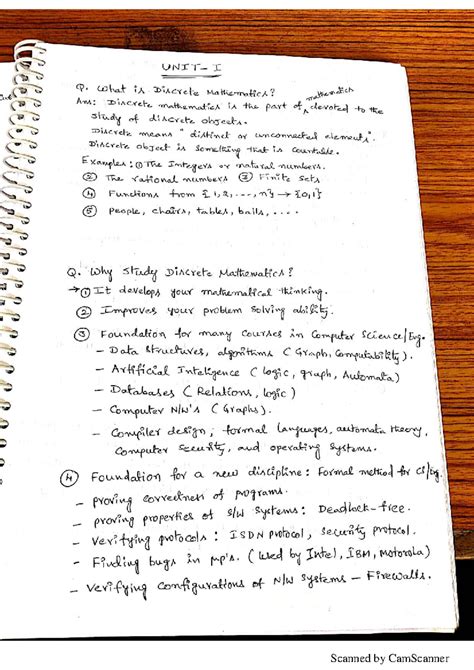 UNIT-I
Q. What is Discrete Mathematics?
Ans: Discrete mathematics is the part of mathematics devoted to the
study of discrete objects.
Discrete means "distinct or unconnected elements".
Discrete object is something that is countable.
Examples: ① The Integers or natural numbers.
② The rational numbers ③ Finite sets
④ Functions from {1,2,...,n} → {0,1}
⑤ people, chairs, tables, balls, ....
Q. Why study Discrete Mathematics?
→ ① It develops your mathematical thinking.
② Improves your problem solving ability.
③ Foundation for many courses in Computer Science/Eng.
- Data structures, algorithms (Graph, Computability).
- Artificial Inteligence (logic, graph, Automata)
- Databases (Relations, logic)
- Computer N/W's (Graphs).
- Compiler design, formal languages, automata theory,
Computer security, and operating systems.
④ Foundation for a new discipline: Formal method for CS/Eng.
- proving correctness of programs.
- proving properties of S/W systems: Deadlock-free.
- verifying protocols: ISDN protocol, security protocol.
- Finding bugs in mp's. (Used by Intel, IBM, Motorola)
- Verifying configurations of N/W systems - Firewalls.
Scanned by CamScanner